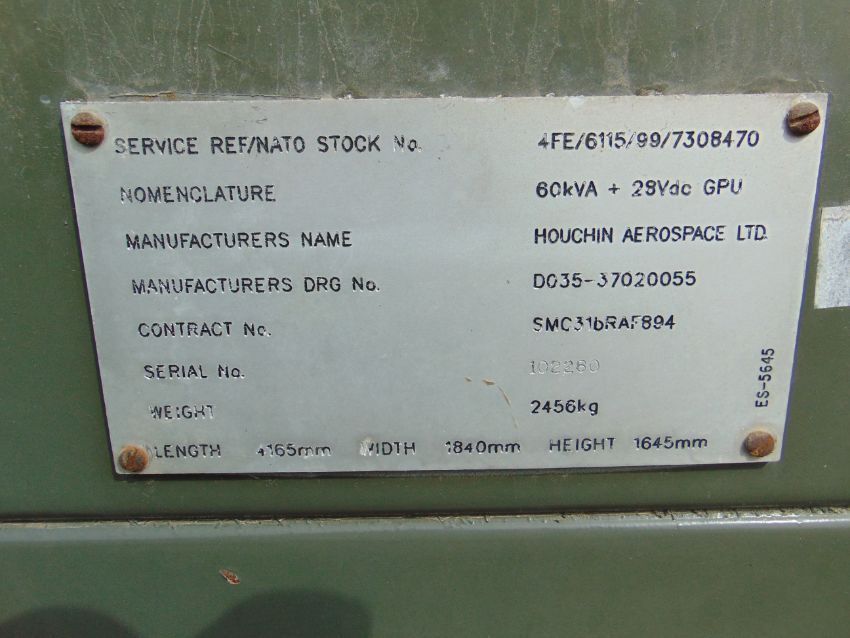 SERVICE REF/NATO STOCK No. 4FE/6115/99/7308470
NOMENCLATURE 60kVA + 28Vdc GPU
MANUFACTURERS NAME HOUCHIN AEROSPACE LTD.
MANUFACTURERS DRG No. D035-37020055
CONTRACT No. SMC31bRAF894
SERIAL No. 102280
WEIGHT 2456kg
LENGTH 4165mm WIDTH 1840mm HEIGHT 1645mm
ES-5645